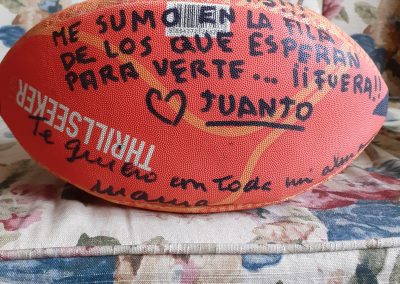 ME SUMO EN LA FILA
DE LOS QUE ESPERAN
PARA VERTE... ¡¡FUERA!!
♡ JUANTO
THRILLSEEKER
Te quiero con toda mi alma
mama